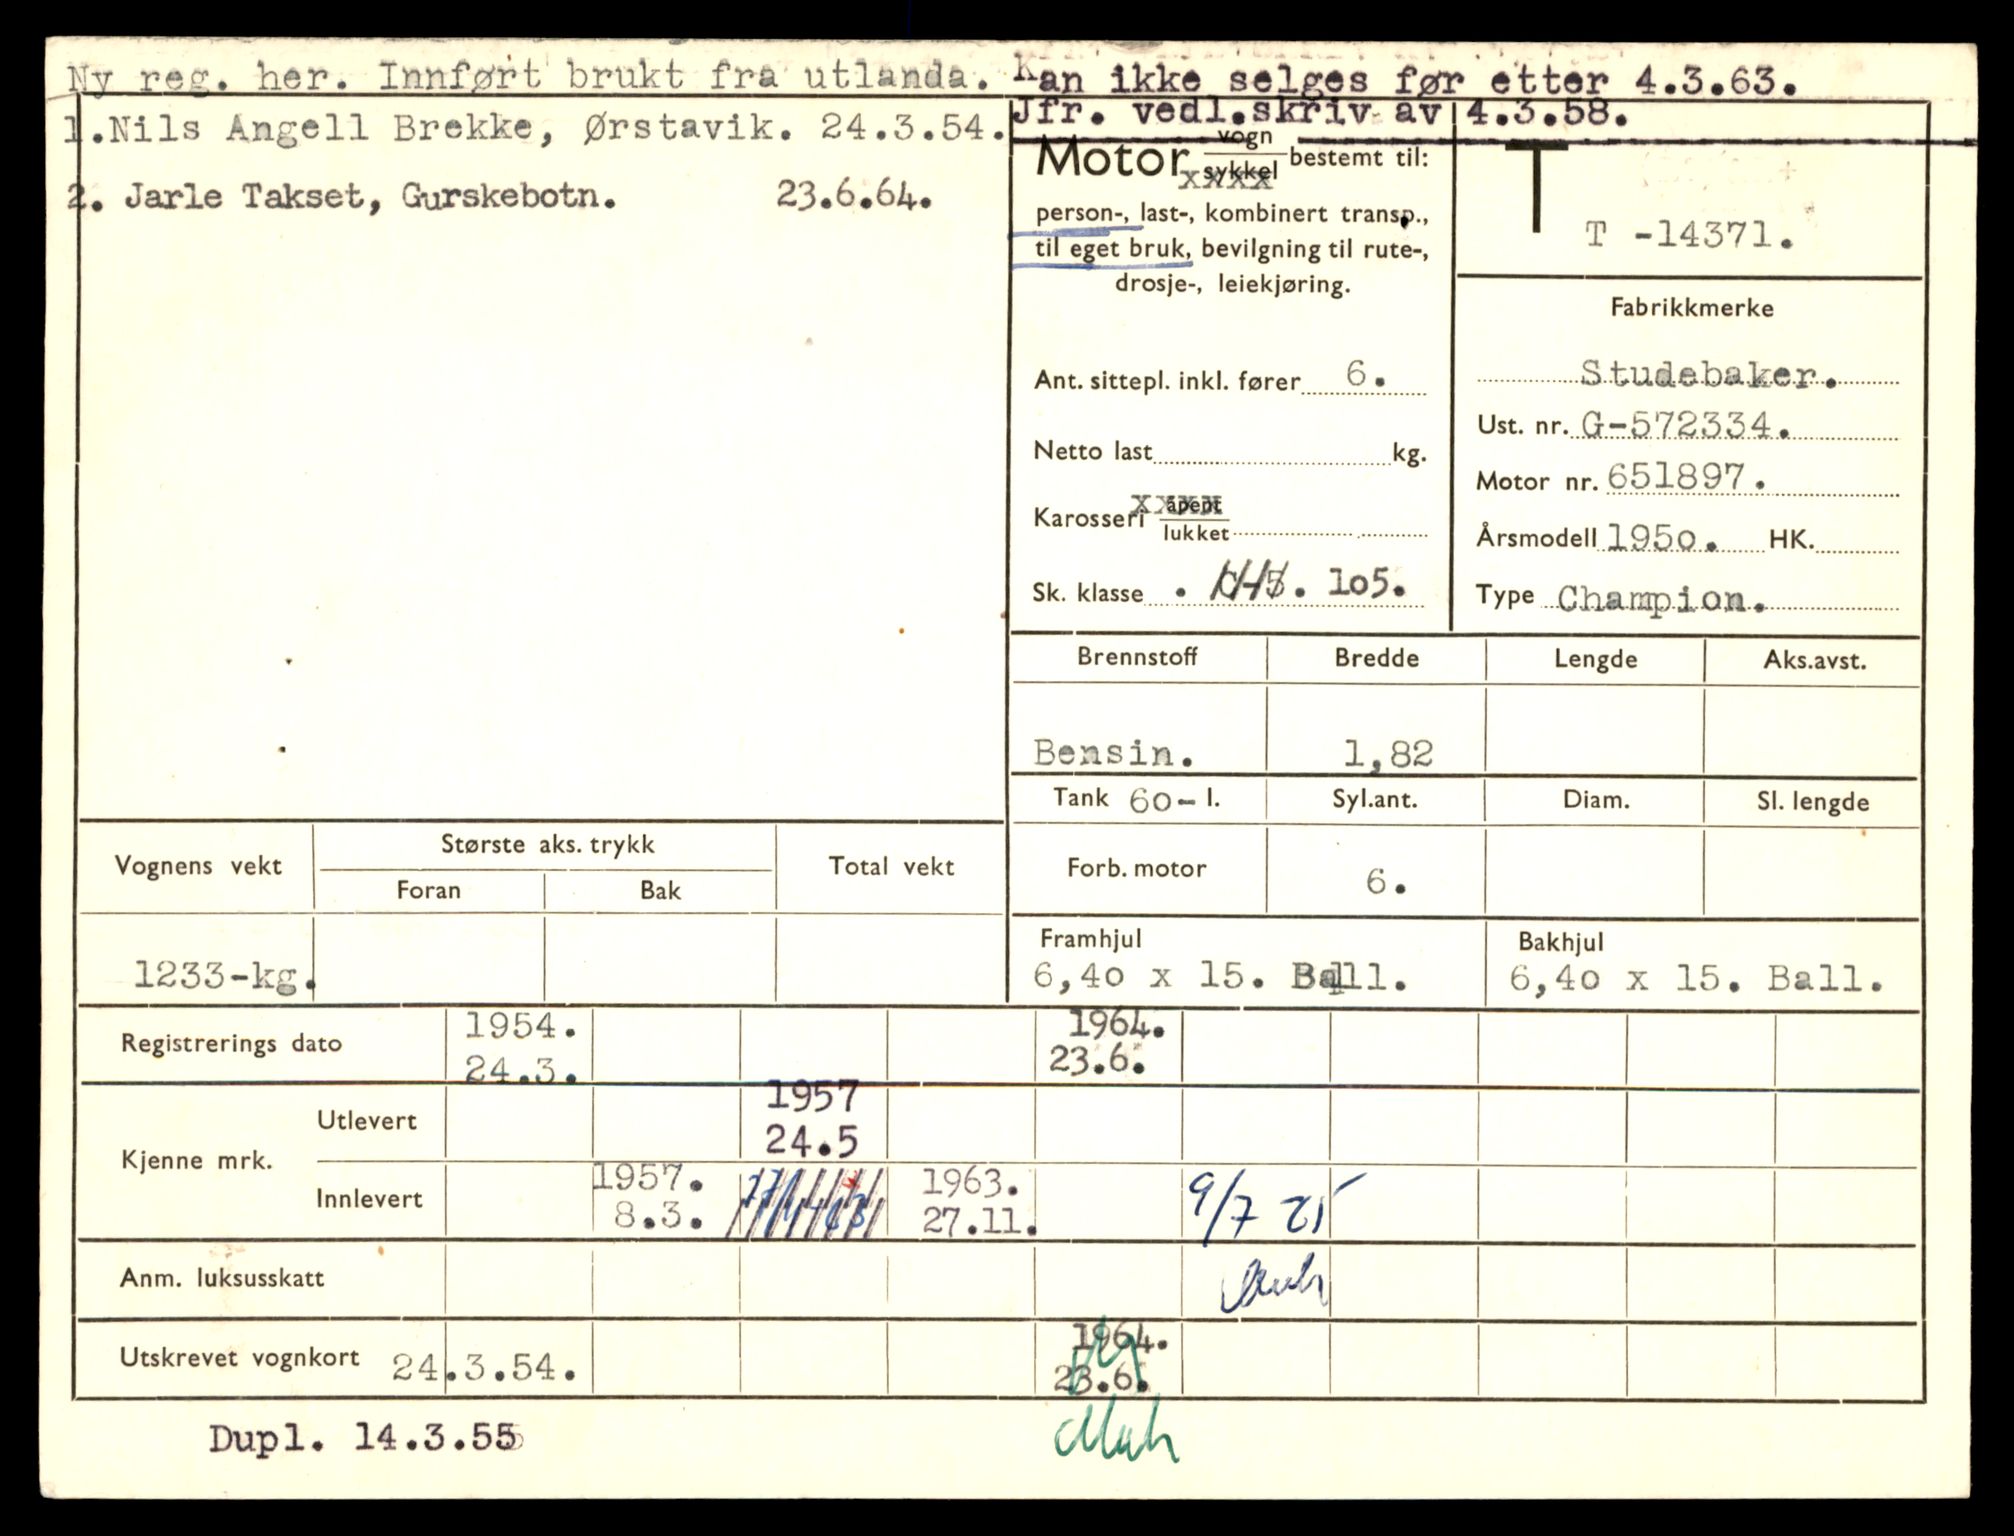 Ny reg. her. Innført brukt fra utlanda. Kan ikke selges før etter 4.3.63.
Jfr. vedl.skriv av 4.3.58.
1.Nils Angell Brekke, Ørstavik. 24.3.54.
2. Jarle Takset, Gurskebotn. 23.6.64.
Motor vogn sykkel bestemt til:
xxxx
person-, last-, kombinert transp.,
til eget bruk, bevilgning til rute-,
drosje-, leiekjøring.
Ant. sittepl. inkl. fører 6.
Netto last kg.
Karosseri xxxx åpent
lukket
Sk. klasse . 105.
T
T -14371.
Fabrikkmerke
Studebaker.
Ust. nr. G-572334.
Motor nr. 651897.
Årsmodell 1950. HK.
Type Champion.
Brennstoff Bredde Lengde Aks.avst.
Bensin. 1,82
Tank 60- l. Syl.ant. Diam. Sl. lengde
Forb. motor 6.
Vognens vekt Største aks. trykk Total vekt
Foran Bak
1233-kg.
Framhjul Bakhjul
6,40 x 15. Ball. 6,40 x 15. Ball.
Registrerings dato 1954. 1964.
24.3. 23.6.
Kjenne mrk. Utlevert 1957
24.5
Innlevert 1957. 1963.
8.3. 27.11. 9/7
Anm. luksusskatt
Utskrevet vognkort 24.3.54. 1964.
23.6.
Dupl. 14.3.55